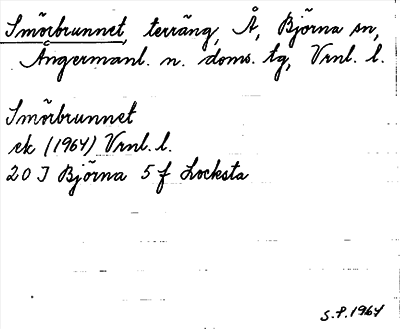 Smörbrunnet, terräng, Å, Björna sn,
Ångermanl. n. doms. tg, Vrnl. l.
Smörbrunnet
ek (1964) Vrnl. l.
20 I Björna 5 f Locksta
S.P. 1964